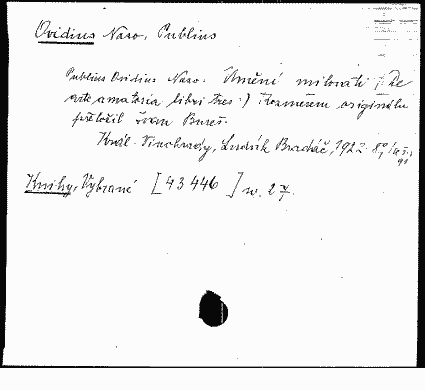 Ovidius Naso, Publius
Publius Ovidius Naso: Umění milovati /: De
arte amatoria libri tres :/ Rozměrem originálu
přeložil Ivan Bureš.
Král. Vinohrady, Ludvík Bradáč, 1922. 8°,
Knihy, Vybrané [43446] w. 2